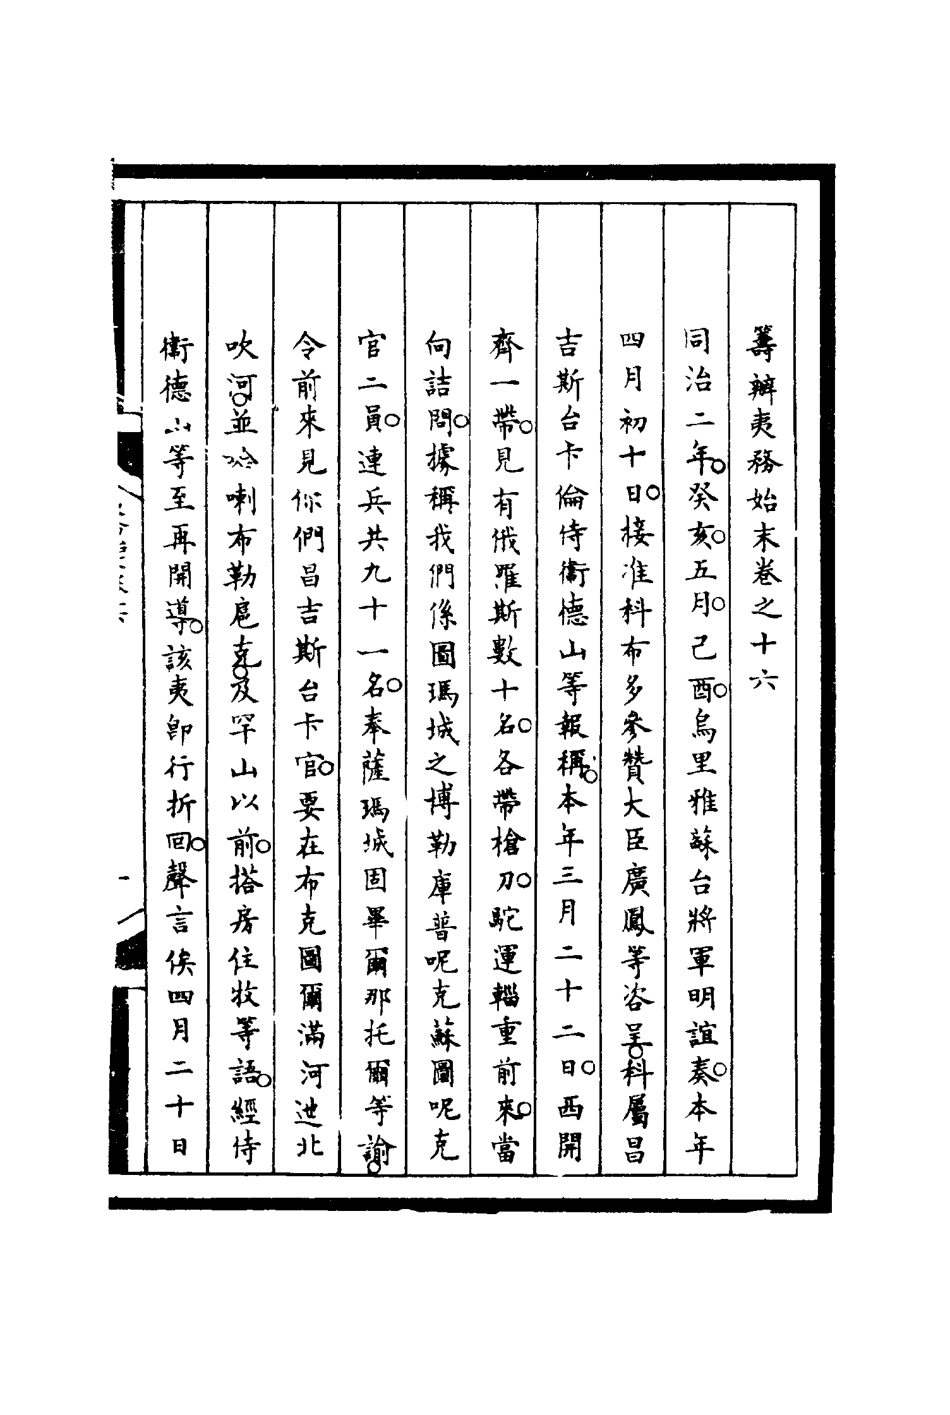 籌辦夷務始末卷之十六
同治二年。癸亥。五月。己酉。烏里雅蘇台將軍明誼奏。本年
四月初十日。接准科布多參贊大臣廣鳳等咨呈。科屬昌
吉斯台卡倫侍衛德山等報稱。本年三月二十二日。西開
齊一帶。見有俄羅斯數十名。各帶槍刀。駝運輜重前來。當
向詰問。據稱我們係圖瑪城之博勒庫普呢克蘇圖呢克
官二員。連兵共九十一名。奉薩瑪城固畢爾那托爾等諭。
令前來見你們昌吉斯台卡官。要在布克圖爾滿河迆北
吹河。並哈喇布勒扈克。及罕山以前。搭房住牧等語。經侍
衛德山等至再開導。該夷卽行折回。聲言俟四月二十日